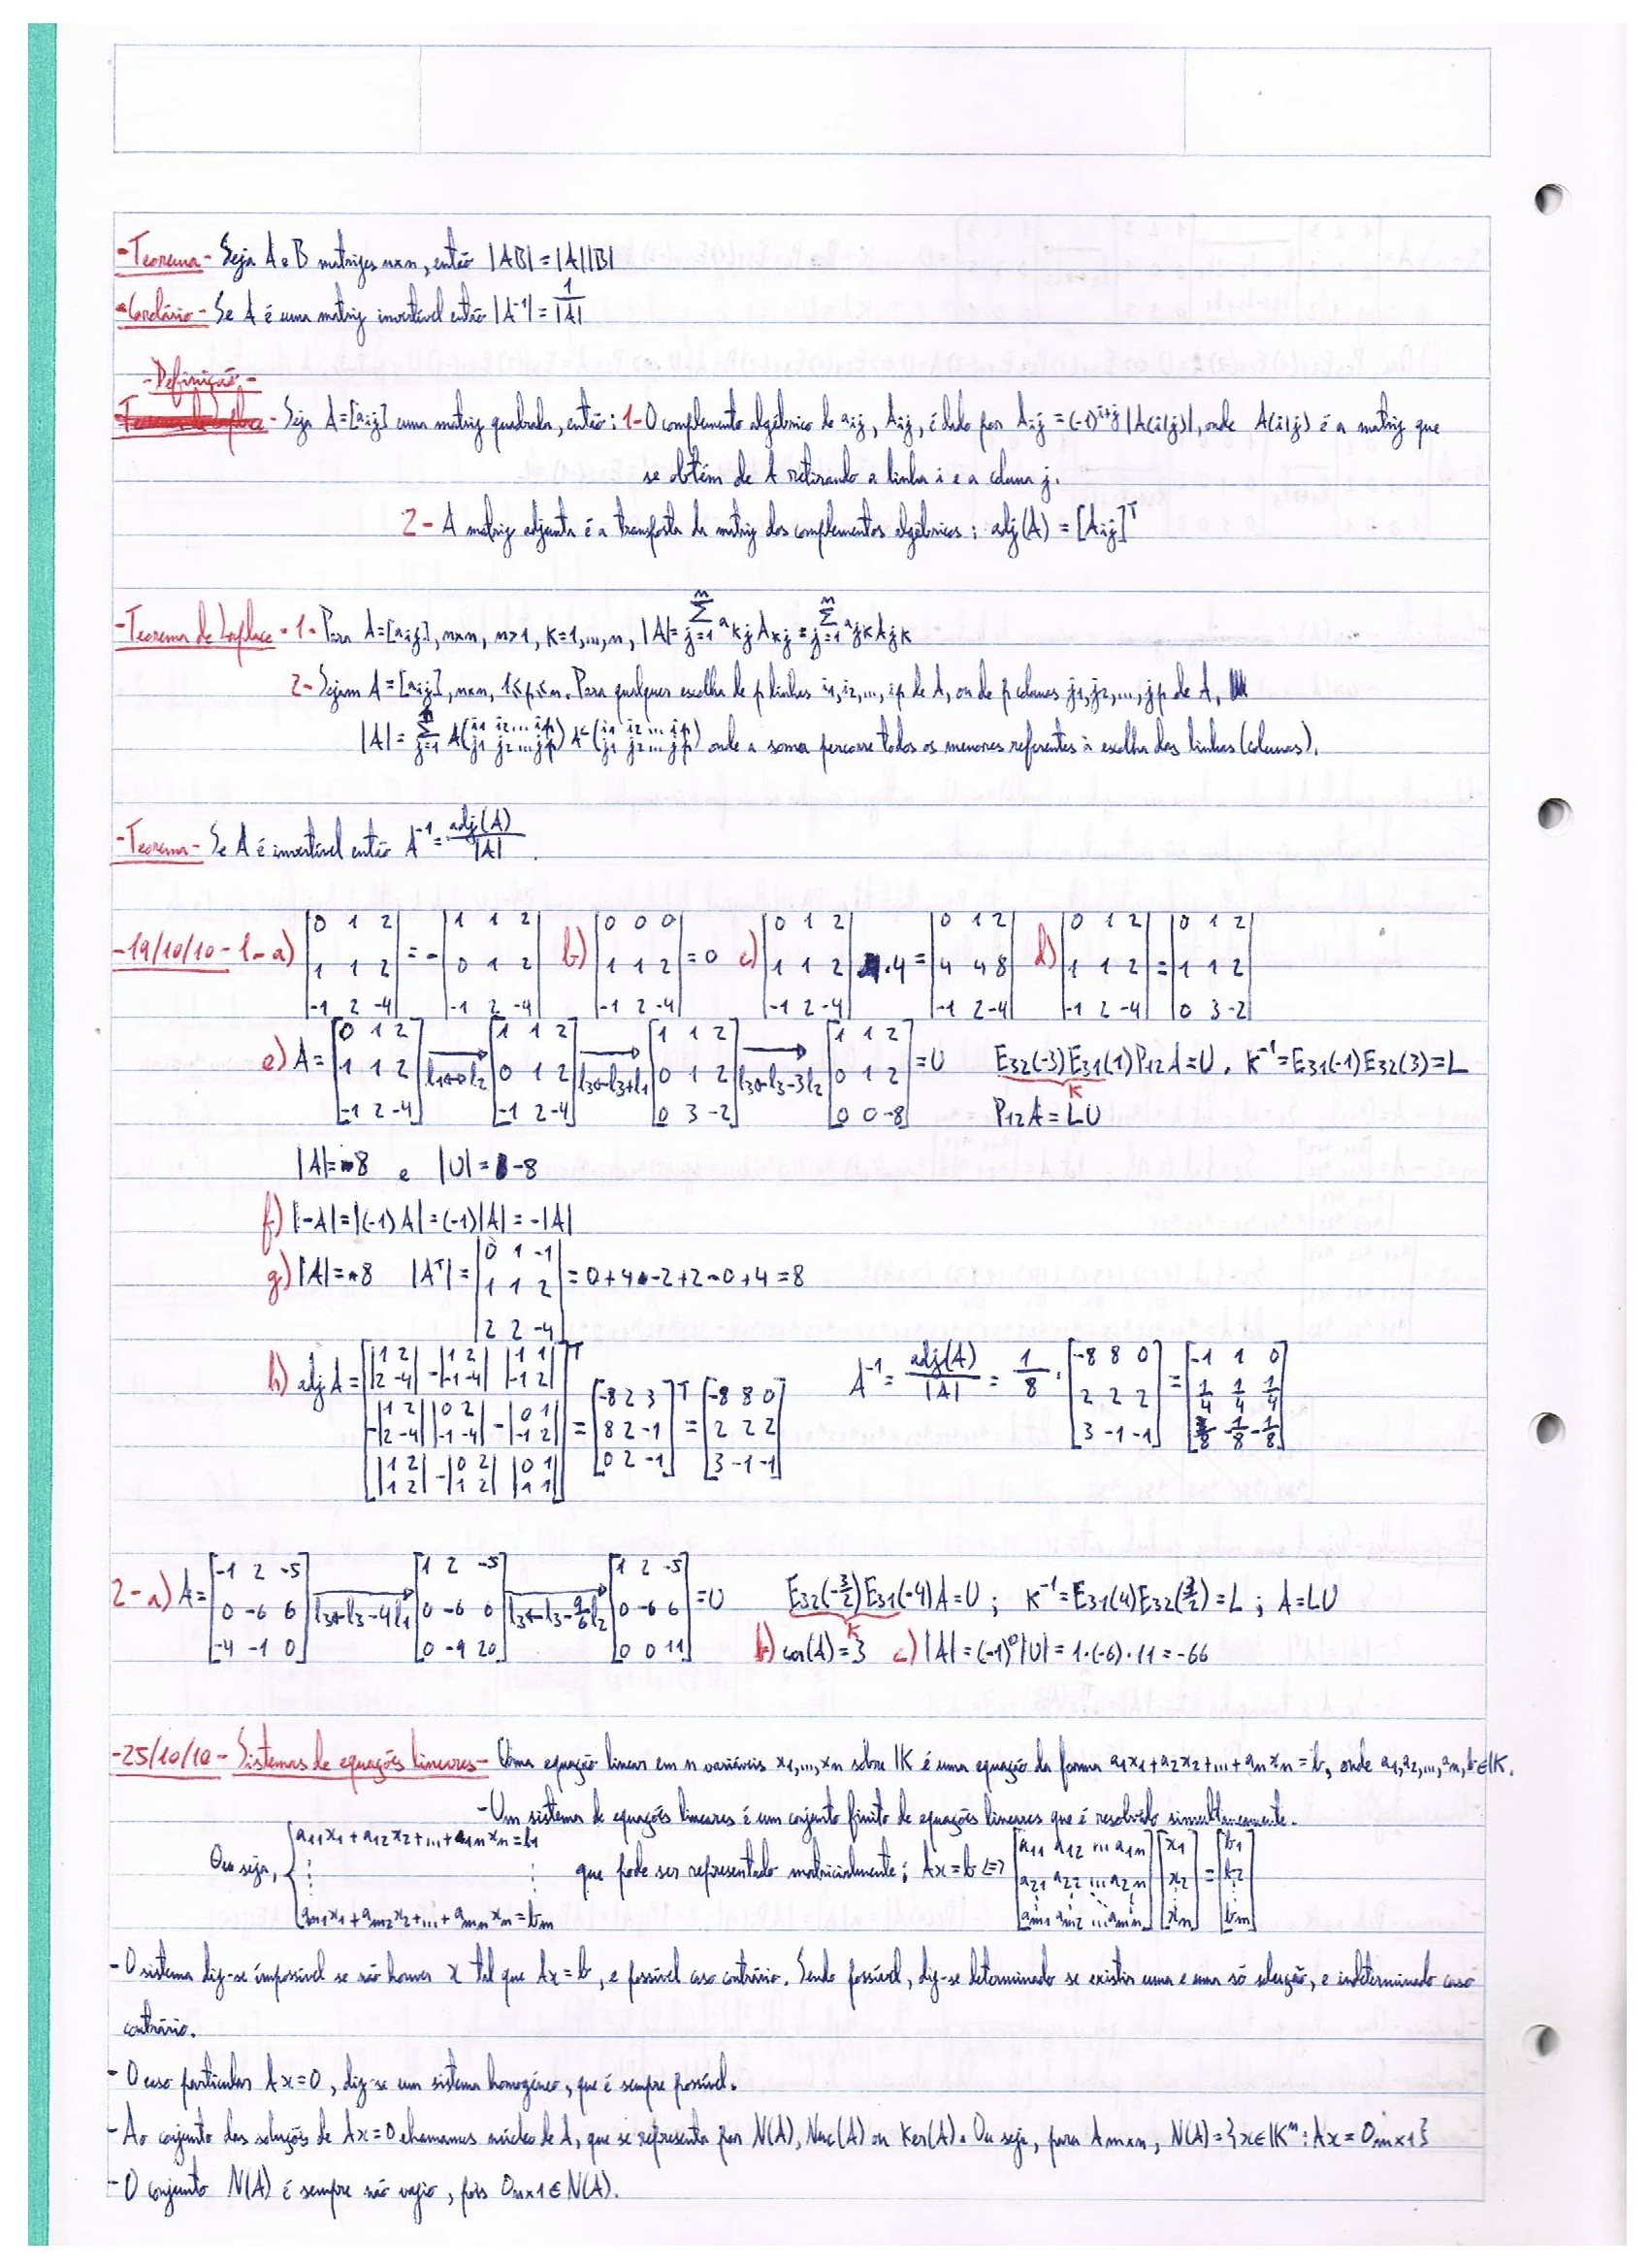 -Teorema- Seja A e B matrizes nxn, então |AB| = |A||B|
-Corolário- Se A é uma matriz invertível então |A⁻¹| = 1/|A|
-Definição-
- Seja A=[aij] uma matriz quadrada, então: 1-O complemento algébrico de aij, Aij, é dado por Aij = (-1)^(i+j) |A(i|j)|, onde A(i|j) é a matriz que
se obtém de A retirando a linha i e a coluna j.
2- A matriz adjunta é a transposta da matriz dos complementos algébricos: adj(A) = [Aij]^T
-Teorema de Laplace - 1- Para A=[aij], nxn, n>1, K=1,...,n, |A| = Σ_{j=1}^{n} akj Akj = Σ_{j=1}^{n} ajk Ajk
2- Sejam A=[aij], nxn, 1≤p≤n. Para qualquer escolha de p linhas i1,i2,...,ip de A, ou de p colunas j1,j2,...,jp de A,
|A| = Σ_{j=1} A(i1 i2...ip / j1 j2...jp) A^c(i1 i2...ip / j1 j2...jp) onde a soma percorre todos os menores referentes à escolha das linhas (colunas).
-Teorema- Se A é invertível então A⁻¹ = adj(A)/|A|.
-19/10/10-1-a) |0 1 2; 1 1 2; -1 2 -4| = -|1 1 2; 0 1 2; -1 2 -4| b) |0 0 0; 1 1 2; -1 2 -4| = 0 c) |0 1 2; 1 1 2; -1 2 -4| .4 = |0 1 2; 4 4 8; -1 2 -4| d) |0 1 2; 1 1 2; -1 2 -4| = |0 1 2; 1 1 2; 0 3 -2|
e) A = [0 1 2; 1 1 2; -1 2 -4] →(l1↔l2) [1 1 2; 0 1 2; -1 2 -4] →(l3←l3+l1) [1 1 2; 0 1 2; 0 3 -2] →(l3←l3-3l2) [1 1 2; 0 1 2; 0 0 -8] = U E32(-3)E31(1)P12A=U, K⁻¹=E31(-1)E32(3)=L
K
P12A = LU
|A| = 8 e |U| = -8
f) |-A| = |(-1)A| = (-1)|A| = -|A|
g) |A| = 8 |A^T| = |0 1 -1; 1 1 2; 2 2 -4| = 0+4-2+2-0+4 = 8
h) adj A = [|1 2; 2 -4| -|1 2; -1 -4| |1 1; -1 2|; -|1 2; 2 -4| |0 2; -1 -4| -|0 1; -1 2|; |1 2; 1 2| -|0 2; 1 2| |0 1; 1 1|]^T = [-8 2 3; 8 2 -1; 0 2 -1]^T = [-8 8 0; 2 2 2; 3 -1 -1] A⁻¹ = adj(A)/|A| = 1/8 . [-8 8 0; 2 2 2; 3 -1 -1] = [-1 1 0; 1/4 1/4 1/4; 3/8 -1/8 -1/8]
2-a) A = [-1 2 -5; 0 -6 6; -4 -1 0] →(l3←l3-4l1) [1 2 -5; 0 -6 6; 0 -9 20] →(l3←l3-9/6l2) [1 2 -5; 0 -6 6; 0 0 11] = U E32(-3/2)E31(-4)A=U; K⁻¹=E31(4)E32(3/2)=L; A=LU
K
b) car(A)=3 c) |A| = (-1)⁰|U| = 1.(-6).11 = -66
-25/10/10- Sistemas de equações lineares- Uma equação linear em n variáveis x1,...,xn sobre IK é uma equação da forma a1x1+a2x2+...+anxn=b, onde a1,a2,...,an,b∈IK.
-Um sistema de equações lineares é um conjunto finito de equações lineares que é resolvido simultaneamente.
Ou seja, {a11x1+a12x2+...+a1nxn=b1 ⋮ am1x1+am2x2+...+amnxn=bm que pode ser representado matricialmente: Ax=b <=> [a11 a12 ... a1n; a21 a22 ... a2n; ⋮; am1 am2 ... amn] [x1; x2; ⋮; xn] = [b1; b2; ⋮; bm]
-O sistema diz-se impossível se não houver x tal que Ax=b, e possível caso contrário. Sendo possível, diz-se determinado se existir uma e uma só solução, e indeterminado caso
contrário.
- O caso particular Ax=0, diz-se um sistema homogéneo, que é sempre possível.
- Ao conjunto das soluções de Ax=0 chamamos núcleo de A, que se representa por N(A), Nuc(A) ou Ker(A). Ou seja, para Amxn, N(A)={x∈IKⁿ: Ax=0mx1}
- O conjunto N(A) é sempre não vazio, pois 0nx1∈N(A).